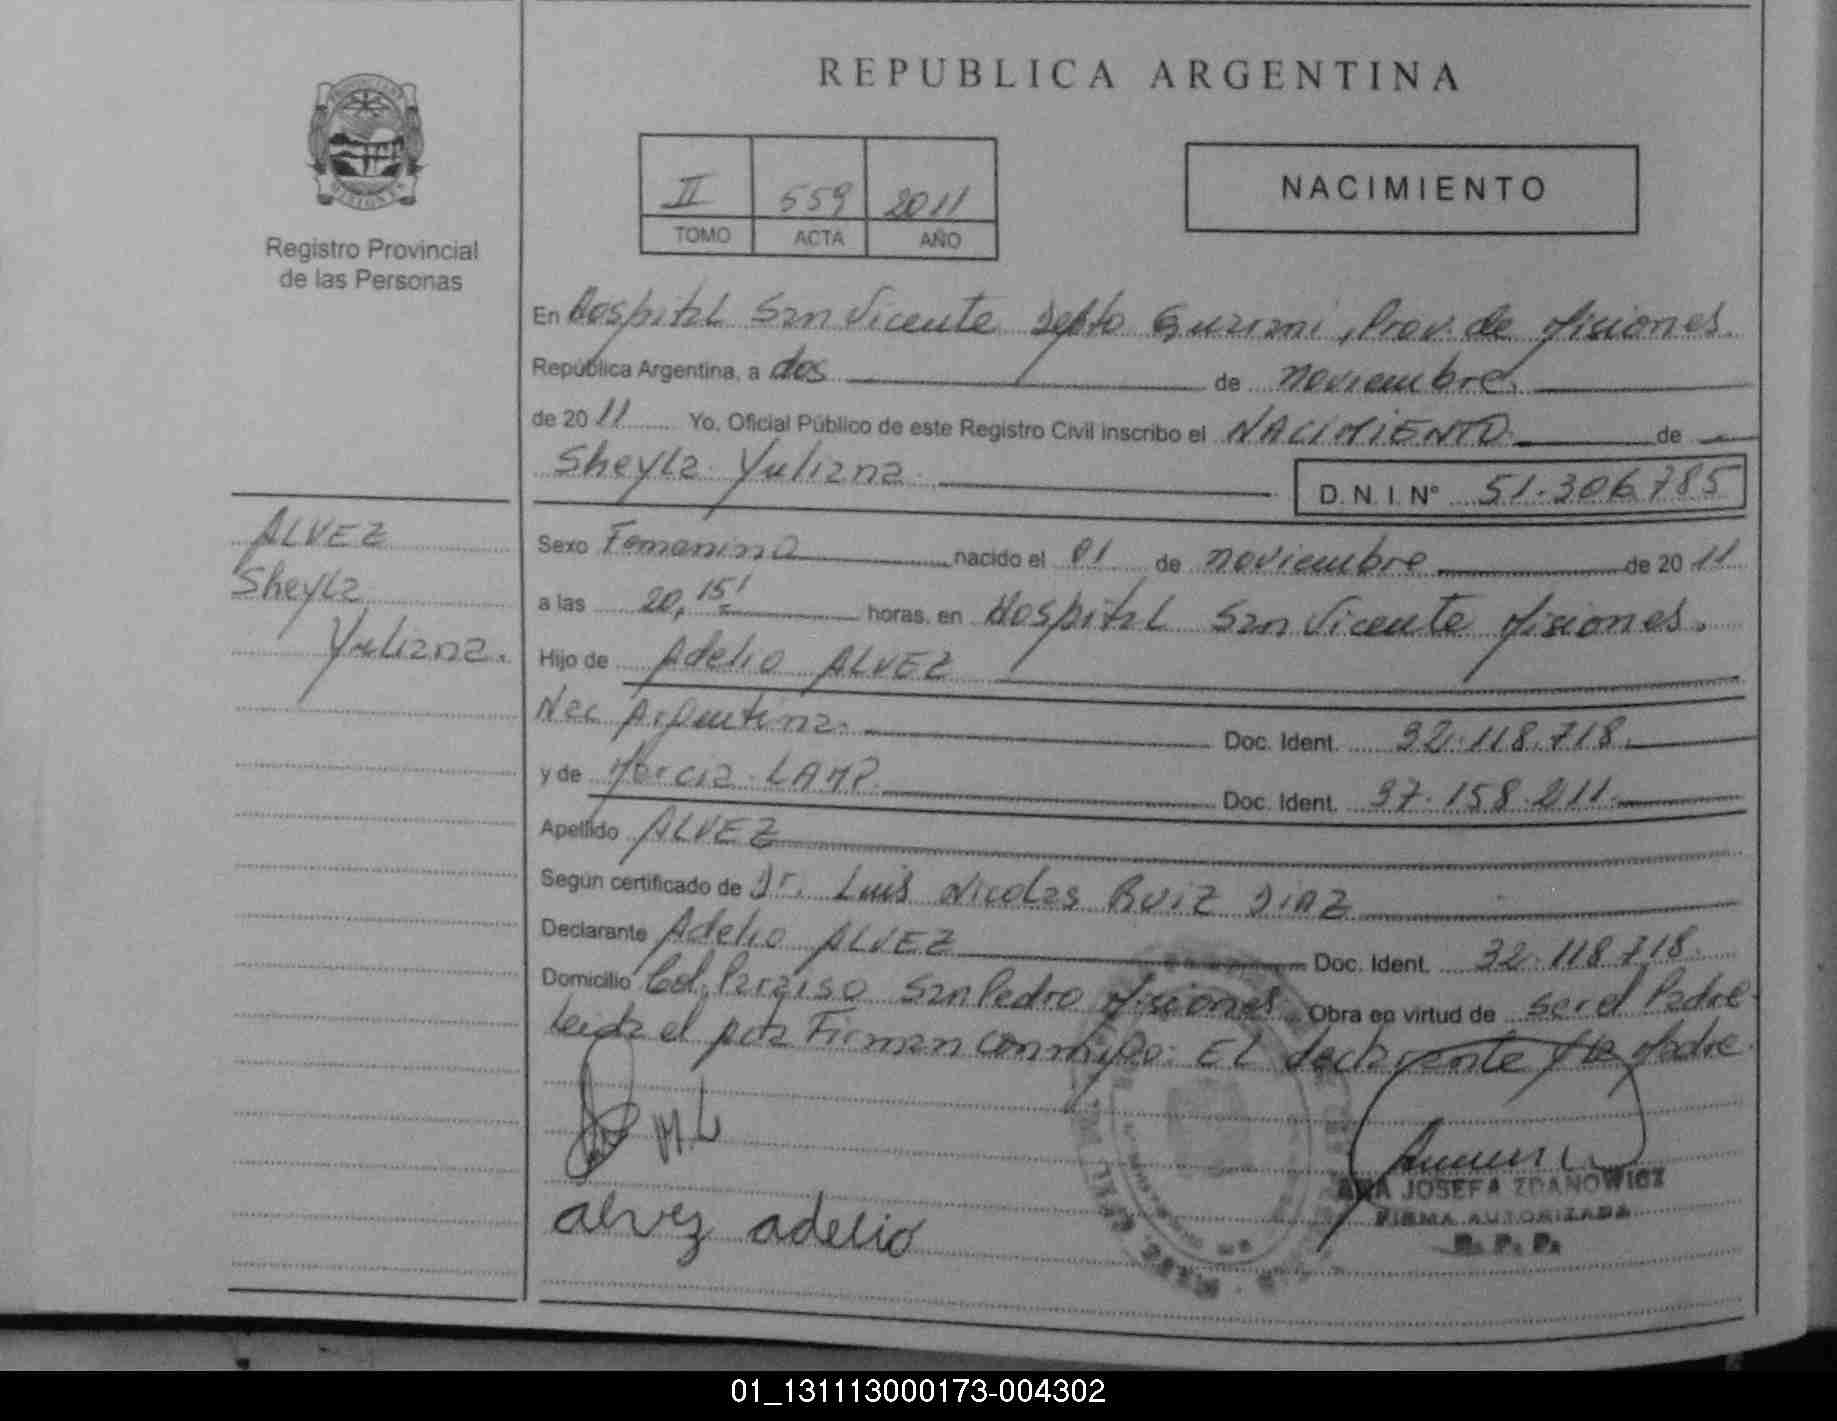 REPUBLICA ARGENTINA
II 559 2011
TOMO ACTA AÑO
NACIMIENTO
Registro Provincial
de las Personas
En Hospital San Vicente Depto Guarani, Prov. de Misiones.
República Argentina, a dos de noviembre.
de 2011 Yo, Oficial Público de este Registro Civil inscribo el NACIMIENTO de
Sheyla Yuliana D.N.I. N° 51.306.785
ALVEZ
Sheyla
Yuliana.
Sexo Femenino nacido el 01 de noviembre de 2011
a las 20,15' horas, en Hospital San Vicente Misiones.
Hijo de Adelio ALVEZ
Nac Argentina. Doc. Ident. 32.118.718.
y de Marcia LAMP. Doc. Ident. 37.158.211.
Apellido ALVEZ
Según certificado de Dr. Luis Nicolas RUIZ DIAZ
Declarante Adelio ALVEZ Doc. Ident. 32.118.718.
Domicilio Col. Paraiso San Pedro Misiones Obra en virtud de ser el Padre
leida el acta Firman conmigo: El declarante y la Madre.
M.L
alvez adelio
ANA JOSEFA ZDANOWICZ
FIRMA AUTORIZADA
R. P. P.
01_131113000173-004302